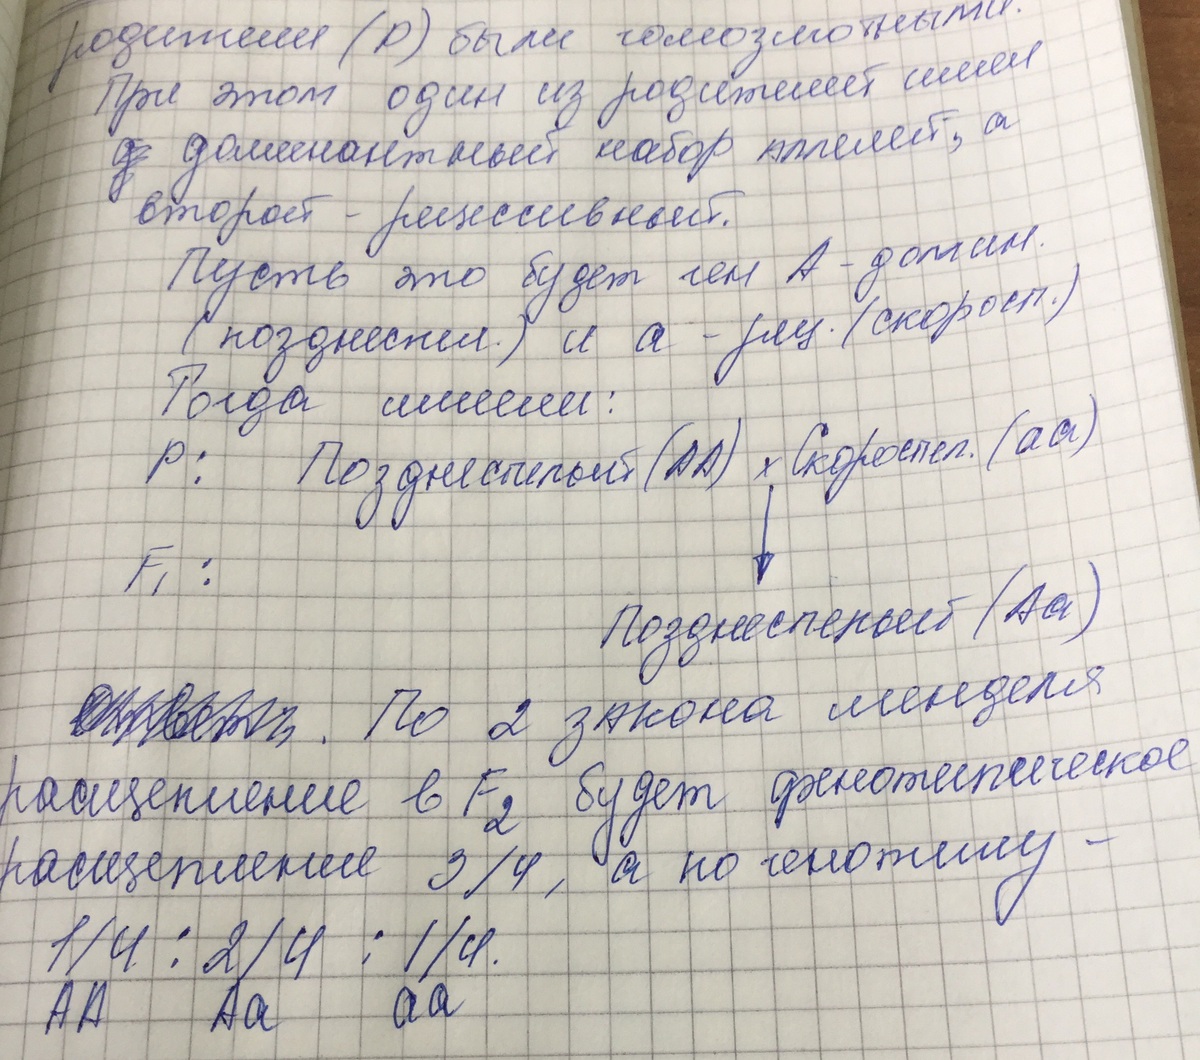 родители (P) были гомозиготными.
При этом один из родителей имел
доминантный набор аллелей, а
второй - рецессивный.
Пусть это будет ген A - домин.
(позднеспел.) и a - рец. (скоросп.)
Тогда имеем:
P: Позднеспелый (AA) x Скороспел. (aa)
F1:
Позднеспелый (Aa)
. По 2 закона менделя
расщепление в F2 будет фенотипическое
расщепление 3/4, а по генотипу -
1/4 : 2/4 : 1/4.
AA Aa aa